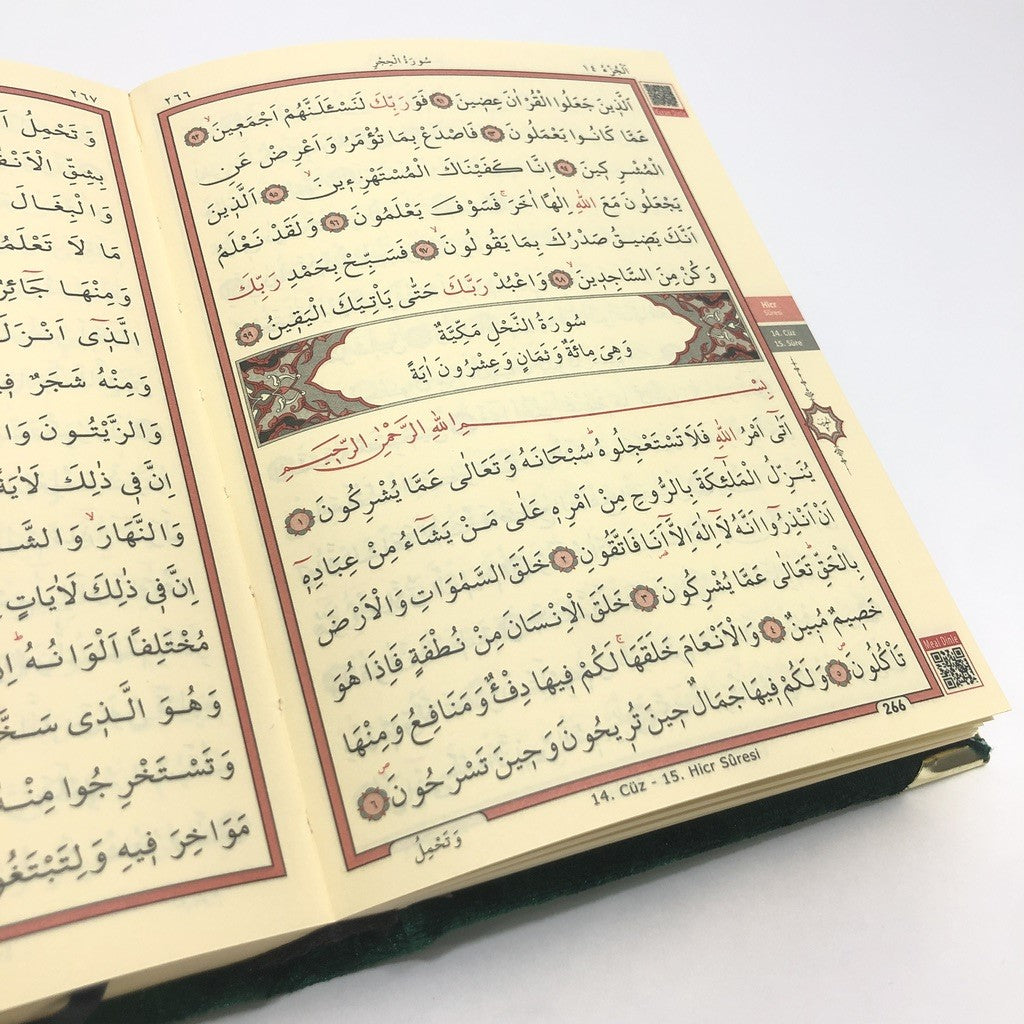 اَلْجُزْءُ ١٤
سُورَةُ الْحِجْرِ
٢٦٦
اَلَّذ۪ينَ جَعَلُوا الْقُرْاٰنَ عِض۪ينَ ٩١ فَوَرَبِّكَ لَنَسْـَٔلَنَّهُمْ اَجْمَع۪ينَۙ ٩٢
عَمَّا كَانُوا يَعْمَلُونَ ٩٣ فَاصْدَعْ بِمَا تُؤْمَرُ وَاَعْرِضْ عَنِ
الْمُشْرِك۪ينَ ٩٤ اِنَّا كَفَيْنَاكَ الْمُسْتَهْزِء۪ينَۙ ٩٥ اَلَّذ۪ينَ
يَجْعَلُونَ مَعَ اللّٰهِ اِلٰهاً اٰخَرَۚ فَسَوْفَ يَعْلَمُونَ ٩٦ وَلَقَدْ نَعْلَمُ
اَنَّكَ يَض۪يقُ صَدْرُكَ بِمَا يَقُولُونَۙ ٩٧ فَسَبِّحْ بِحَمْدِ رَبِّكَ
وَكُنْ مِنَ السَّاجِد۪ينَۙ ٩٨ وَاعْبُدْ رَبَّكَ حَتّٰى يَأْتِيَكَ الْيَق۪ينُ ٩٩
سُورَةُ النَّحْلِ مَكِّيَّةٌ
وَهِيَ مِائَةٌ وَثَمَانٍ وَعِشْرُونَ اٰيَةً
بِسْمِ اللّٰهِ الرَّحْمٰنِ الرَّح۪يمِ
اَتٰٓى اَمْرُ اللّٰهِ فَلَا تَسْتَعْجِلُوهُۜ سُبْحَانَهُ وَتَعَالٰى عَمَّا يُشْرِكُونَ ١
يُنَزِّلُ الْمَلٰٓئِكَةَ بِالرُّوحِ مِنْ اَمْرِه۪ عَلٰى مَنْ يَشَٓاءُ مِنْ عِبَادِه۪ٓ
اَنْ اَنْذِرُٓوا اَنَّهُ لَٓا اِلٰهَ اِلَّٓا اَنَا۬ فَاتَّقُونِ ٢ خَلَقَ السَّمٰوَاتِ وَالْاَرْضَ
بِالْحَقِّۜ تَعَالٰى عَمَّا يُشْرِكُونَ ٣ خَلَقَ الْاِنْسَانَ مِنْ نُطْفَةٍ فَاِذَا هُوَ
خَص۪يمٌ مُب۪ينٌ ٤ وَالْاَنْعَامَ خَلَقَهَاۚ لَكُمْ ف۪يهَا دِفْءٌ وَمَنَافِعُ وَمِنْهَا
تَأْكُلُونَۖ ٥ وَلَكُمْ ف۪يهَا جَمَالٌ ح۪ينَ تُر۪يحُونَ وَح۪ينَ تَسْرَحُونَۖ ٦
266
14. Cüz - 15. Hicr Sûresi
وَتَحْمِلُ
Hicr
Sûresi
14. Cüz
15. Sûre
Meal Dinle
٢٦٧
وَتَحْمِلُ
بِشِقِّ
وَالْبِغَالَ
مَا لَا
وَمِنْهَا جَٓائِرٌ
اَلَّذ۪ٓي اَنْزَلَ
وَمِنْهُ شَجَرٌ
وَالزَّيْتُونَ
اِنَّ ف۪ي ذٰلِكَ لَاٰيَةً
وَالنَّهَارَۙ
اِنَّ ف۪ي ذٰلِكَ لَاٰيَاتٍ
مُخْتَلِفاً اَلْوَانُهُۜ
وَهُوَ الَّذ۪ي
وَتَسْتَخْرِجُوا مِنْهُ
مَوَاخِرَ ف۪يهِ